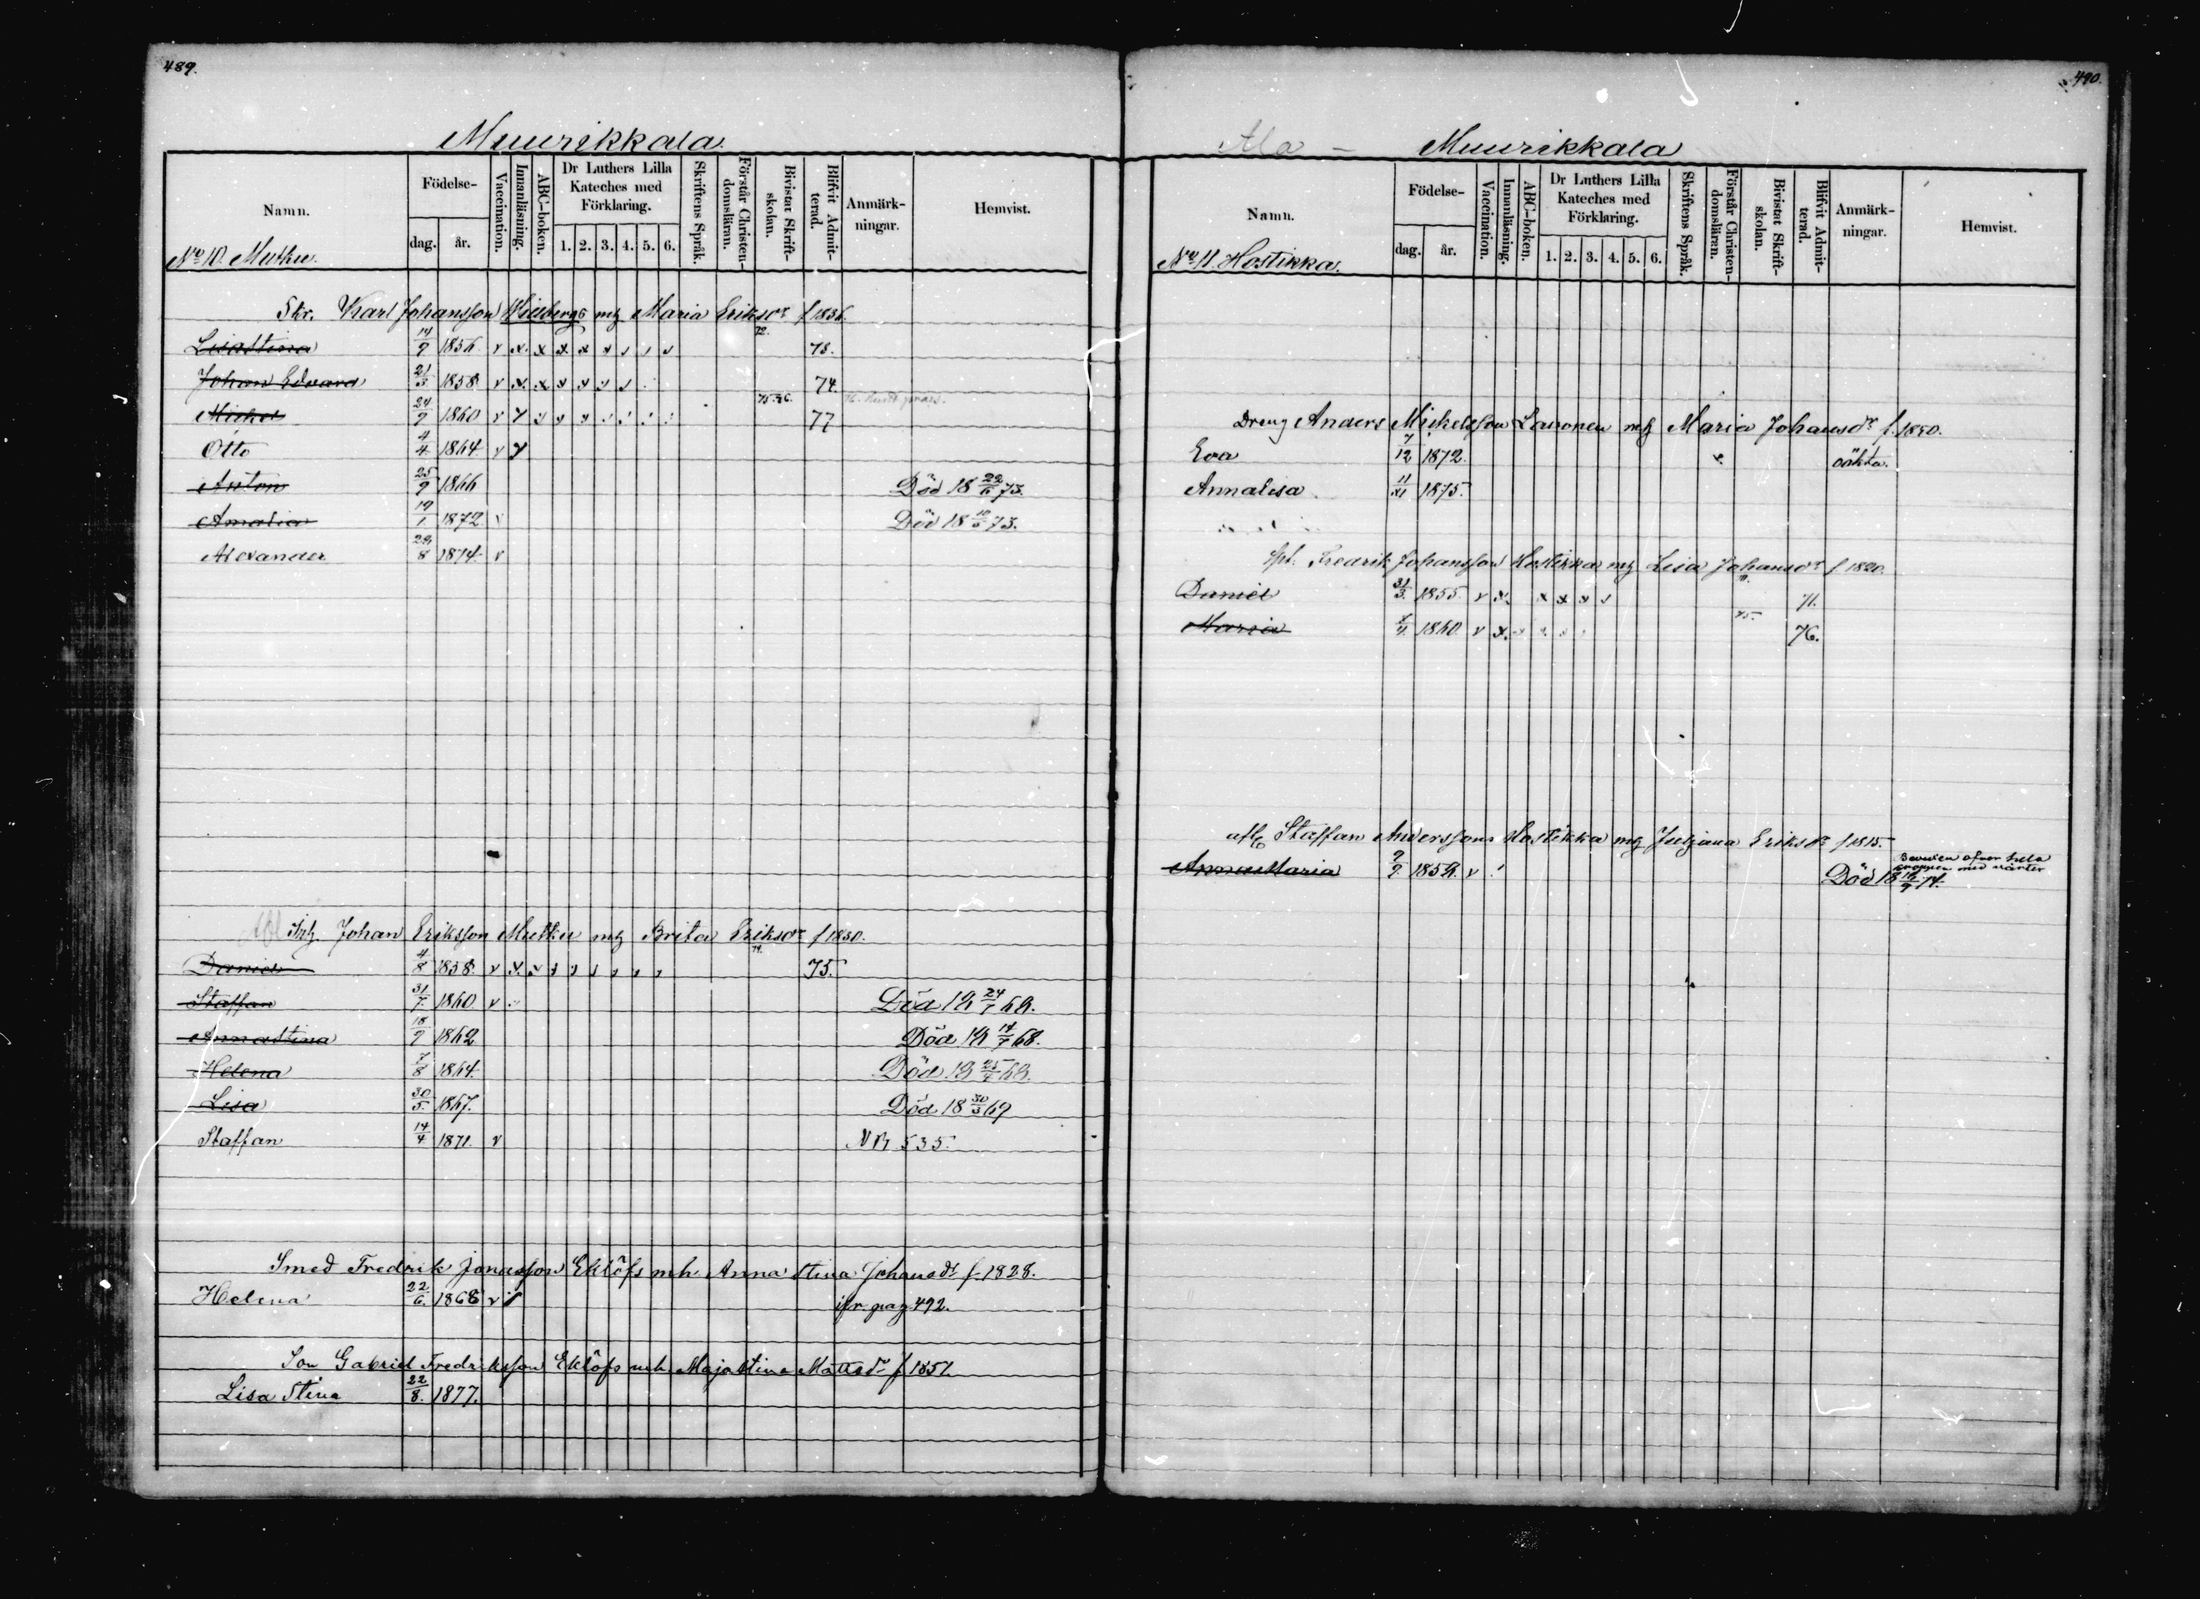 489.
Muurikkala.
Namn.
Födelse-
dag. år.
Vaccination.
Innanläsning.
ABC-boken.
Dr Luthers Lilla Kateches med Förklaring.
1. 2. 3. 4. 5. 6.
Skriftens Språk.
Förstår Christen-domsläran.
Bivistat Skrift-skolan.
Blifvit Admit-terad.
Anmärk-ningar.
Hemvist.
No 10. Mutku.
Skr. Karl Johansson mh Maria Eriksdr f 1836.
Lisastina 14/9 1856. v x x x x x 72. 73.
Johan Edvard 21/5 1858 v x x x x 74.
Michel 24/9 1860 v 75. 76. 77
Otto 4/4 1864 v
Anton 25/9 1866 Död 18 22/6 73.
Amalia 19/1 1872 v Död 18 73.
Alexander 8 1874. v
Johan Eriksson Mutku mh Brita Eriksdr f 1830.
Daniel 4/8 1858. v x 75.
Staffan 31/7 1860 v Död 18 24/7 68.
Annastina 18/9 1862 Död 18 14/7 68.
Helena 7/8 1864. Död 18 68.
Lisa 30/5 1867. Död 18 30/3 69
Staffan 14/4 1871. v 535.
Smed Fredrik Jonasson Eklöfs mh. Anna Stina Johansdr f 1828.
Helena 22/6. 1868 v ifr. pag. 492.
Son Gabriel Fredriksson Eklöfs mh. Maja Stina Mattsdr f 1851.
Lisa Stina 22/8. 1877.
490.
Ala - Muurikkala
Namn.
Födelse-
dag. år.
Vaccination.
Innanläsning.
ABC-boken.
Dr Luthers Lilla Kateches med Förklaring.
1. 2. 3. 4. 5. 6.
Skriftens Språk.
Förstår Christen-domsläran.
Bivistat Skrift-skolan.
Blifvit Admit-terad.
Anmärk-ningar.
Hemvist.
No 11. Hostikka.
Dreng Anders Michelsson mh Maria Johansdr f. 1850.
Eva 12 1872. oäkta.
Annalisa 11/11 1875.
Fredrik Johansson Hostikka mh Lisa Johansdr f 1820.
Daniel 31/3. 1855. v x x x x 71.
Maria 4 1860 v x 75. 76.
Staffan Anderssons Hostikka mh Juljana Eriksdr f 1815.
Anna Maria 9/9 v Död 18